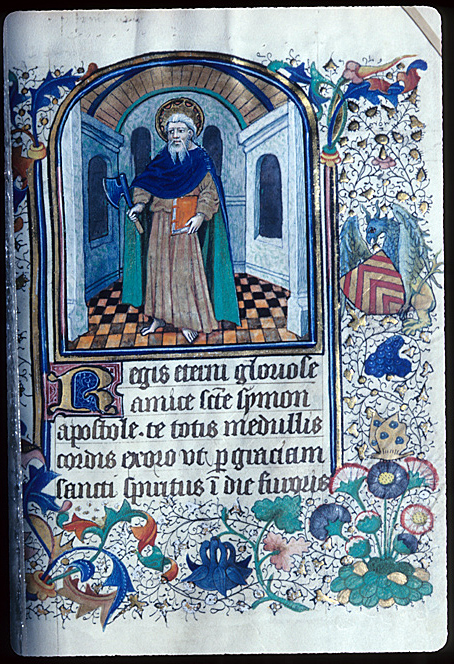 Regis eterni gloriose
amice scte symon
apostole. te totis medullis
cordis exoro vt p graciam
sancti spiritus i die furoris